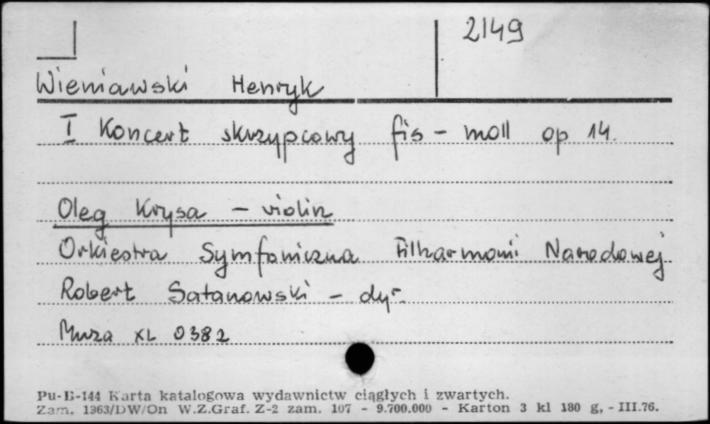 2149
Wieniawski Henryk
I Koncert skrzypcowy fis-moll op 14.
Oleg Krysa - violin
Orkiestra Symfoniczna Filharmonii Narodowej
Robert Satanowski - dyr.
Muza XL 0382
Pu-B-144 Karta katalogowa wydawnictw ciągłych i zwartych.
Zam. 1363/DW/On W.Z.Graf. Z-2 zam. 107 - 9.700.000 - Karton 3 kl 180 g, - III.76.